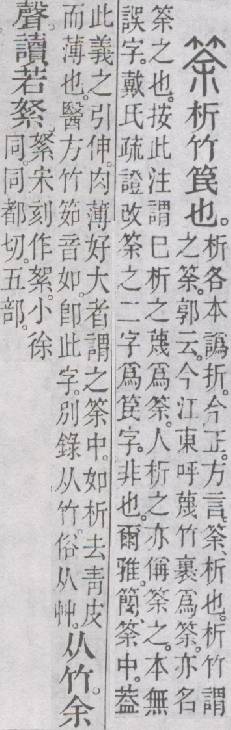 筡析竹笢也。
析各本譌折。今正。方言。筡、析也。析竹謂
之筡。郭云。今江東呼蔑竹裏爲筡。亦名
筡之也。按此注謂巳析之蔑爲筡。人析之亦偁筡之。本無
誤字。戴氏疏證改筡之二字爲笢字。非也。爾雅。簢、筡中。葢
此義之引伸。肉薄好大者謂之筡中。如析去靑皮
而薄也。醫方竹筎音如。卽此字。別錄从竹。俗从艸。
从竹。余
聲。讀若絮。
絮宋刻作䋈。小徐
同。同都切。五部。